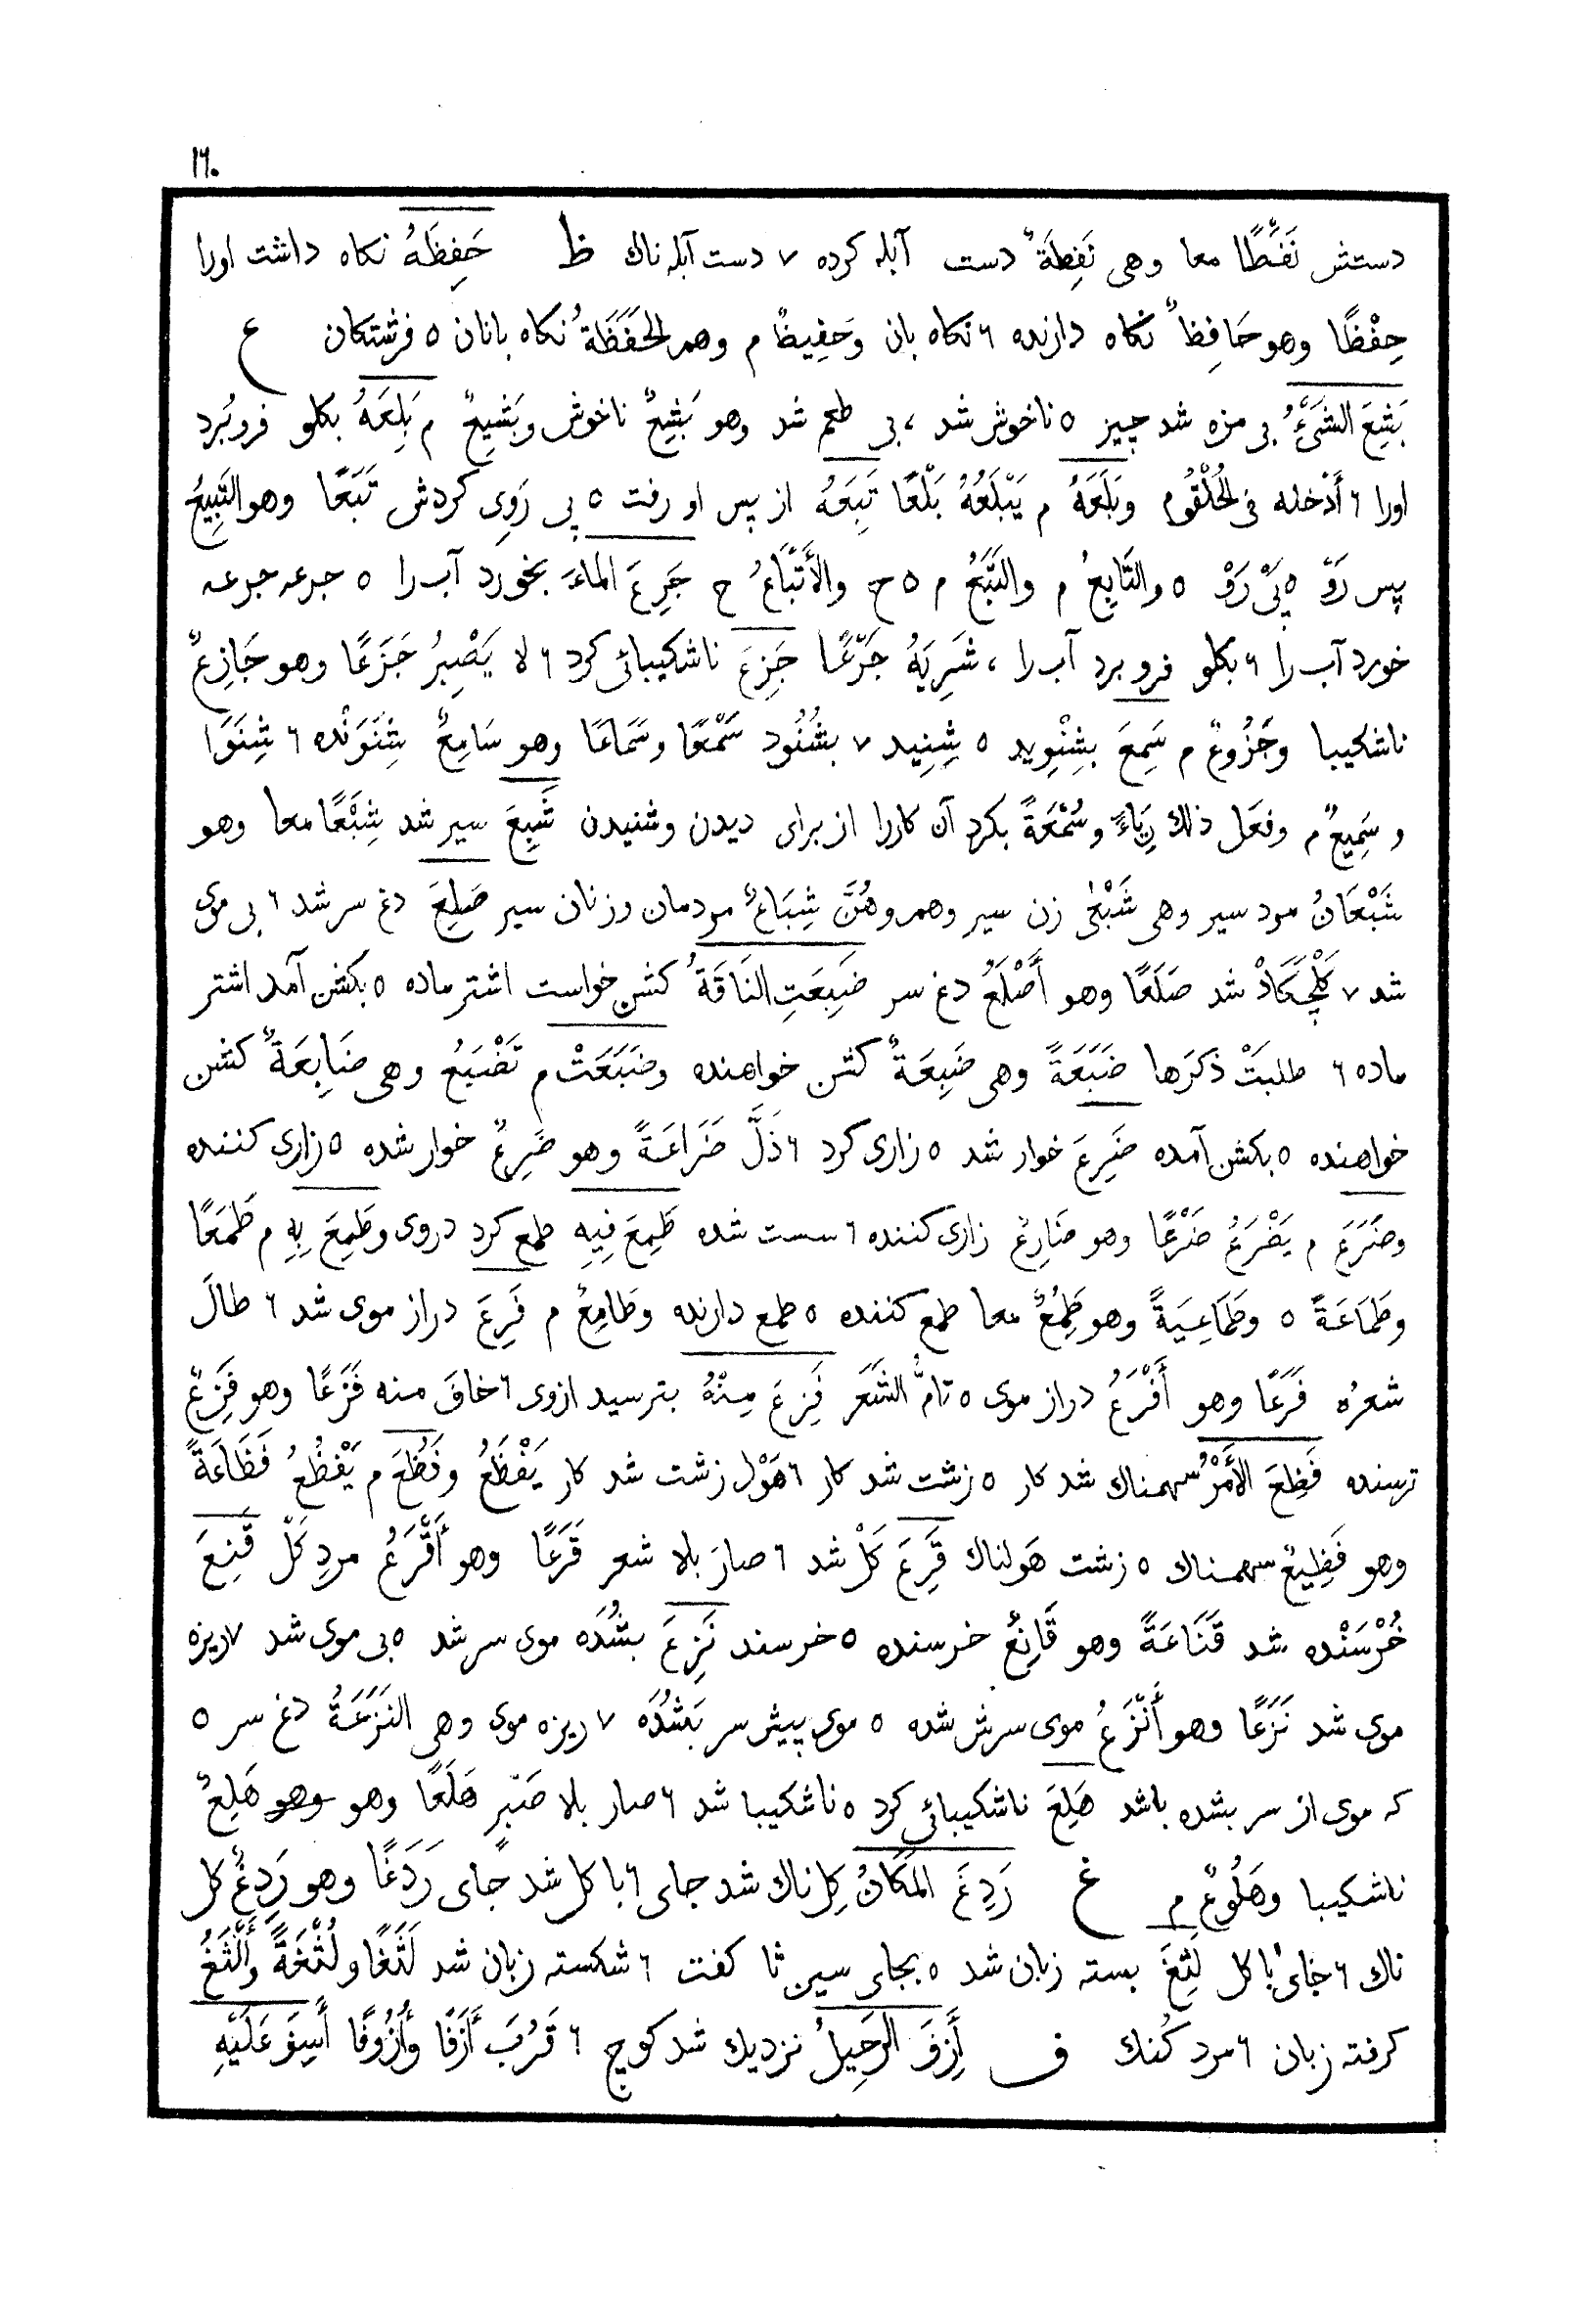 ١٦٠
دستش نَفَطًا معا وهی نَفِطَةٌ دست آبله کرده ٧ دست آبله ناك ظ حَفِظَهُ نکاه داشت اورا
حِفْظًا وهو حَافِظٌ نکاه دارنده ٦ نکاه بان وَحَفِیظٌ م وهم الحَفَظَةُ نکاه بانان ٥ فرشتکان ع
بَشِعَ الشَیْءُ بی مزه شد چیز ٥ ناخوش شد ، بی طعم شد وهو بَشِعٌ ناخوش وبَشِیعٌ م بَلِعَهُ بکلو فروبُرد
اورا ٦ أَدْخله فی الحُلْقُوم وبَلَعَهُ م یَبْلَعُهُ بَلْعًا تَبِعَهُ از پس او رفت ٥ پی رَوِی کردش تَبَعًا وهو التَبِیعُ
پس رَوْ ٥ پَیْ رَوْ ٥ والتَابِعُ م والتَبَعُ م ٥ ج والأَتْبَاعُ ج جَرِعَ الماءَ بخورد آب را ٥ جرعه جرعه
خورد آب را ٦ بکلو فرو برد آب را ، شَرِبَهُ جَرْعًا جَزِعَ ناشکیبائی کرد ٦ لا یَصْبِرُ جَزَعًا وهو جَازِعٌ
ناشکیبا وجَزُوعٌ م سَمِعَ بِشِنْوِید ٥ شِنِید ٧ بشُنُود سَمْعًا وسَمَاعًا وهو سَامِعٌ شِنَوَنْده ٦ شِنَوَا
و سَمِیعٌ م وفعَل ذلك رِیَاءً وسُمْعَةً بکرد آن کاررا از برای دیدن وشنیدن شَبِعَ سیر شد شِبَْعًا معا وهو
شَبْعَانُ مرد سیر وهی شَبْعَیٰ زن سیر وهم وهُنَّ شِبَاعٌ مردمان وزنان سیر صَلِعَ دغ سر شد ٦ بی موی
شد ٧ کَلْچَکَادْ شد صَلَعًا وهو أَصْلَعُ دغ سر ضَبِعَتِ النَاقَةُ کشن خواست اشتر ماده ٥ بکشن آمد اشتر
ماده ٦ طلبَتْ ذکَرَها ضَبَعَةً وهی ضَبِعَةٌ کشن خواهنده وضَبَعَتْ م تَضْبَعُ وهی ضَابِعَةٌ کشن
خواهنده ٥ بکشن آمده ضَرِعَ خوار شد ٥ زاری کرد ٦ ذَلَّ ضَرَاعَةً وهو ضَرِعٌ خوار شده ٥ زاری کننده
وضَرَعَ م یَضْرَعُ ضَرْعًا وهو ضَارِعٌ زاری کننده ٦ سست شده طَمِعَ فِیهِ طمع کرد دروی وطَمِعَ بِهِ م طَمَعًا
وطَمَاعَةً ٥ وطَمَاعِیَةً وهو طَمِعٌ معا طمع کننده ٥ طمع دارنده وطَامِعٌ م فَرِعَ دراز موی شد ٦ طالَ
شعرُه فَرَعًا وهو أَفْرَعُ دراز موی ٥ تامُّ الشَعَر فَزِعَ مِنْهُ بترسید ازوی ٦ خافَ منه فَزَعًا وهو فَزِعٌ
ترسنده فَظِعَ الأَمْرُ سهمناك شد کار ٥ زشت شد کار ٦ هَوْل زشت شد کار یَفْظَعُ وفَظُعَ م یَفْظُعُ فَظَاعَةً
وهو فَظِیعٌ سهمناك ٥ زشت هَولناك قَرِعَ کَلْ شد ٦ صارَ بلا شعر قَرَعًا وهو أَقْرَعُ مردِ کَلْ قَنِعَ
خُرْسَنْده شد قَنَاعَةً وهو قَانِعٌ خرسنده ٥ خرسند نَزِعَ بشُدَه موی سر شد ٥ بی موی شد ٧ ریزه
موی شد نَزَعًا وهو أَنْزَعُ موی سرش شده ٥ موی پیش سر بَشُدَه ٧ ریزه موی وهی النَزَعَةُ دغ سر ٥
که موی از سر بشده باشد هَلِعَ ناشکیبائی کرد ٥ ناشکیبا شد ٦ صار بلا صَبْر هَلَعًا وهو وهو هَلِعٌ
ناشکیبا وهَلُوعٌ م غ رَدِغَ المَکَانُ کِل ناك شد جای ٦ با کل شد جای رَدَغًا وهو رَدِغٌ کل
ناك ٦ جای با کل لَثِغَ بسته زبان شد ٥ بجای سین ثا کفت ٦ شکسته زبان شد لَثَغًا ولُثْغَةً وأَلْثَغُ
کرفته زبان ٦ مرد کُنك ف أَزِفَ الرَحِیلُ نزدیك شد کوچ ٦ قَرُبَ أَزَفًا وأُزُوفًا أَسِفَ عَلَیْهِ